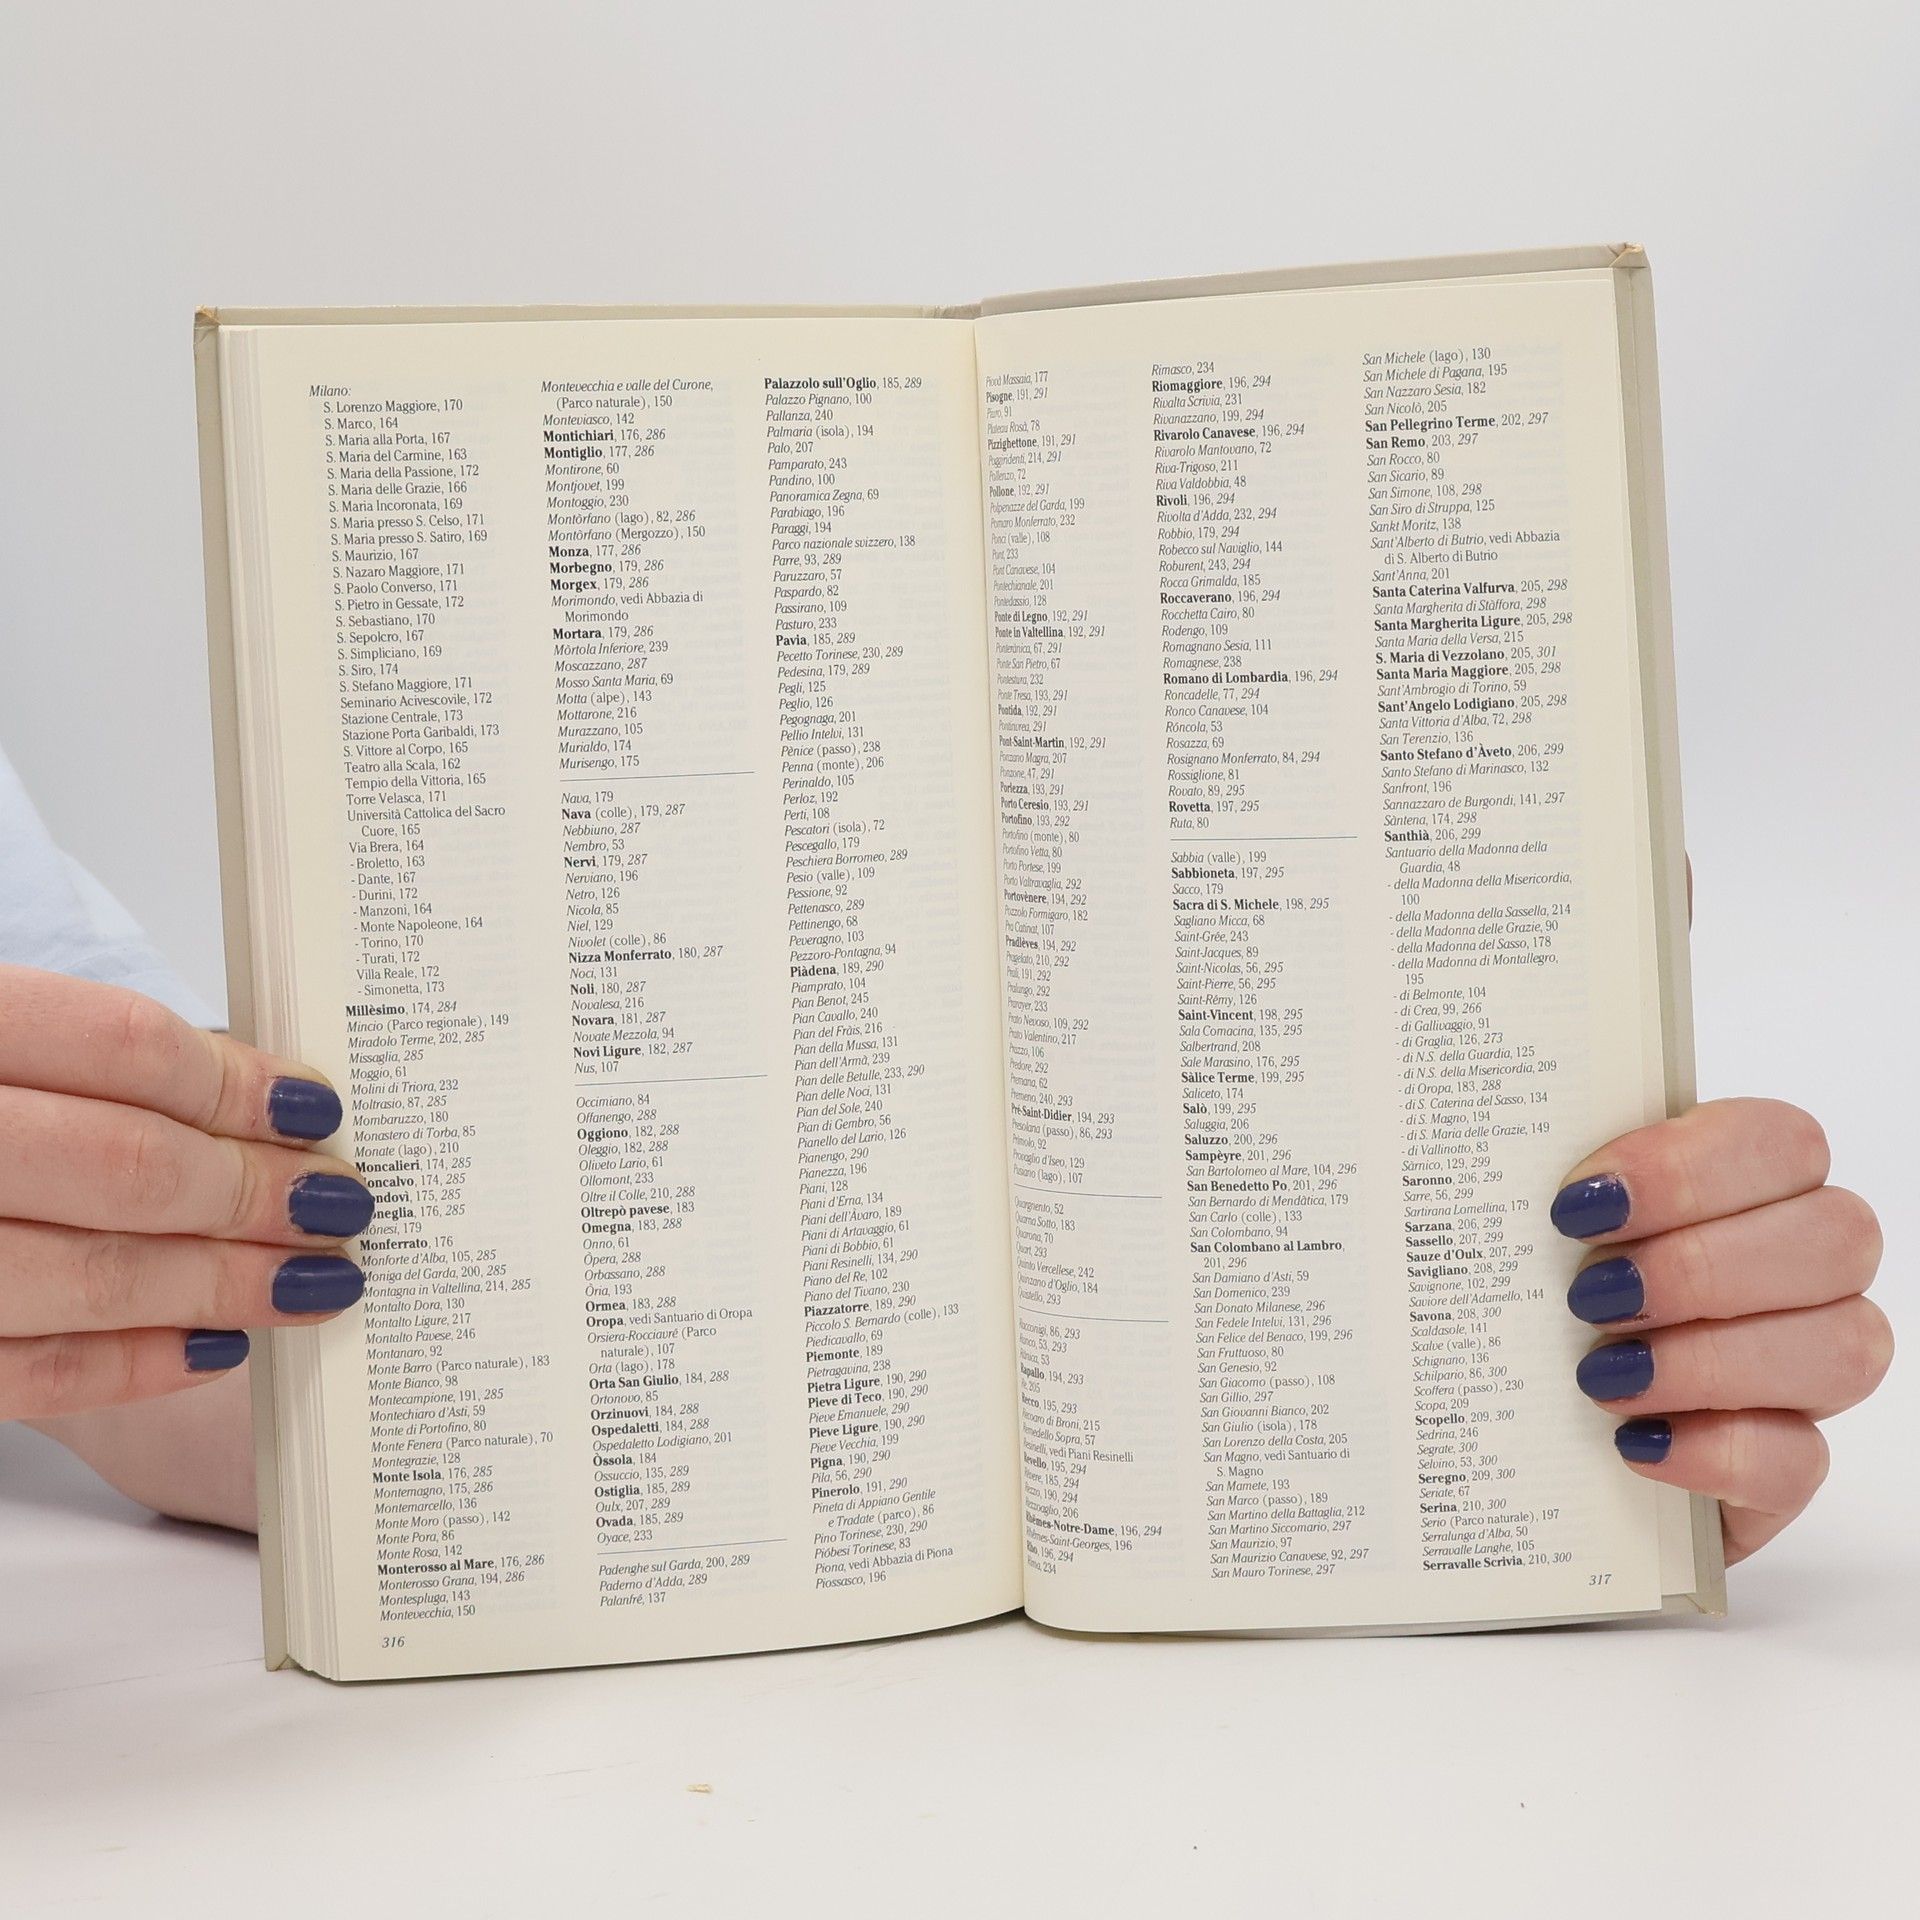 Milano:
S. Lorenzo Maggiore, 170
S. Marco, 164
S. Maria alla Porta, 167
S. Maria del Carmine, 163
S. Maria della Passione, 172
S. Maria delle Grazie, 166
S. Maria Incoronata, 169
S. Maria presso S. Celso, 171
S. Maria presso S. Satiro, 169
S. Maurizio, 167
S. Nazaro Maggiore, 171
S. Paolo Converso, 171
S. Pietro in Gessate, 172
S. Sebastiano, 170
S. Sepolcro, 167
S. Simpliciano, 169
S. Siro, 174
S. Stefano Maggiore, 171
Seminario Acivescovile, 172
Stazione Centrale, 173
Stazione Porta Garibaldi, 173
S. Vittore al Corpo, 165
Teatro alla Scala, 162
Tempio della Vittoria, 165
Torre Velasca, 171
Università Cattolica del Sacro
Cuore, 165
Via Brera, 164
- Broletto, 163
- Dante, 167
- Durini, 172
- Manzoni, 164
- Monte Napoleone, 164
- Torino, 170
- Turati, 172
Villa Reale, 172
- Simonetta, 173
Millèsimo, 174, 284
Mincio (Parco regionale), 149
Miradolo Terme, 202, 285
Missaglia, 285
Moggio, 61
Molini di Triora, 232
Moltrasio, 87, 285
Mombaruzzo, 180
Monastero di Torba, 85
Monate (lago), 210
Moncalieri, 174, 285
oncalvo, 174, 285
ondovì, 175, 285
oneglia, 176, 285
ònesi, 179
Monferrato, 176
Monforte d'Alba, 105, 285
Moniga del Garda, 200, 285
Montagna in Valtellina, 214, 285
Montalto Dora, 130
Montalto Ligure, 217
Montalto Pavese, 246
Montanaro, 92
Monte Barro (Parco naturale), 183
Monte Bianco, 98
Montecampione, 191, 285
Montechiaro d'Asti, 59
Monte di Portofino, 80
Monte Fenera (Parco naturale), 70
Montegrazie, 128
Monte Isola, 176, 285
Montemagno, 175, 286
Montemarcello, 136
Monte Moro (passo), 142
Monte Pora, 86
Monte Rosa, 142
Monterosso al Mare, 176, 286
Monterosso Grana, 194, 286
Montespluga, 143
Montevecchia, 150
316
Montevecchia e valle del Curone,
(Parco naturale), 150
Monteviasco, 142
Montichiari, 176, 286
Montiglio, 177, 286
Montirone, 60
Montjovet, 199
Montoggio, 230
Montòrfano (lago), 82, 286
Montòrfano (Mergozzo), 150
Monza, 177, 286
Morbegno, 179, 286
Morgex, 179, 286
Morimondo, vedi Abbazia di
Morimondo
Mortara, 179, 286
Mòrtola Inferiore, 239
Moscazzano, 287
Mosso Santa Maria, 69
Motta (alpe), 143
Mottarone, 216
Murazzano, 105
Murialdo, 174
Murisengo, 175
Nava, 179
Nava (colle), 179, 287
Nebbiuno, 287
Nembro, 53
Nervi, 179, 287
Nerviano, 196
Netro, 126
Nicola, 85
Niel, 129
Nivolet (colle), 86
Nizza Monferrato, 180, 287
Noci, 131
Noli, 180, 287
Novalesa, 216
Novara, 181, 287
Novate Mezzola, 94
Novi Ligure, 182, 287
Nus, 107
Occimiano, 84
Offanengo, 288
Oggiono, 182, 288
Oleggio, 182, 288
Oliveto Lario, 61
Ollomont, 233
Oltre il Colle, 210, 288
Oltrepò pavese, 183
Omegna, 183, 288
Onno, 61
Òpera, 288
Orbassano, 288
Òria, 193
Ormea, 183, 288
Oropa, vedi Santuario di Oropa
Orsiera-Rocciavré (Parco
naturale), 107
Orta (lago), 178
Orta San Giulio, 184, 288
Ortonovo, 85
Orzinuovi, 184, 288
Ospedaletti, 184, 288
Ospedaletto Lodigiano, 201
Òssola, 184
Ossuccio, 135, 289
Ostiglia, 185, 289
Oulx, 207, 289
Ovada, 185, 289
Oyace, 233
Padenghe sul Garda, 200, 289
Paderno d'Adda, 289
Palanfré, 137
Palazzolo sull'Oglio, 185, 289
Palazzo Pignano, 100
Pallanza, 240
Palmaria (isola), 194
Palo, 207
Pamparato, 243
Pandino, 100
Panoramica Zegna, 69
Parabiago, 196
Paraggi, 194
Parco nazionale svizzero, 138
Parre, 93, 289
Paruzzaro, 57
Paspardo, 82
Passirano, 109
Pasturo, 233
Pavia, 185, 289
Pecetto Torinese, 230, 289
Pedesina, 179, 289
Pegli, 125
Peglio, 126
Pegognaga, 201
Pellio Intelvi, 131
Pènice (passo), 238
Penna (monte), 206
Perinaldo, 105
Perloz, 192
Perti, 108
Pescatori (isola), 72
Pescegallo, 179
Peschiera Borromeo, 289
Pesio (valle), 109
Pessione, 92
Pettenasco, 289
Pettinengo, 68
Peveragno, 103
Pezzoro-Pontagna, 94
Piàdena, 189, 290
Piamprato, 104
Pian Benot, 245
Pian Cavallo, 240
Pian del Fràis, 216
Pian della Mussa, 131
Pian dell'Armà, 239
Pian delle Betulle, 233, 290
Pian delle Noci, 131
Pian del Sole, 240
Pian di Gembro, 56
Pianello del Lario, 126
Pianengo, 290
Pianezza, 196
Piani, 128
Piani d'Erna, 134
Piani dell'Àvaro, 189
Piani di Artavaggio, 61
Piani di Bobbio, 61
Piani Resinelli, 134, 290
Piano del Re, 102
Piano del Tivano, 230
Piazzatorre, 189, 290
Piccolo S. Bernardo (colle), 133
Piedicavallo, 69
Piemonte, 189
Pietragavina, 238
Pietra Ligure, 190, 290
Pieve di Teco, 190, 290
Pieve Emanuele, 290
Pieve Ligure, 190, 290
Pieve Vecchia, 199
Pigna, 190, 290
Pila, 56, 290
Pinerolo, 191, 290
Pineta di Appiano Gentile
e Tradate (parco), 86
Pino Torinese, 230, 290
Piòbesi Torinese, 83
Piona, vedi Abbazia di Piona
Piossasco, 196
Massaia, 177
Pisogne, 191, 291
Piuro, 91
Plateau Rosà, 78
Pizzighettone, 191, 291
Poggiridenti, 214, 291
Pollenzo, 72
Pollone, 192, 291
Polpenazze del Garda, 199
Pomaro Monferrato, 232
Ponci (valle), 108
Pont, 233
Pont Canavese, 104
Pontechianale, 201
Pontedassio, 128
Ponte di Legno, 192, 291
Ponte in Valtellina, 192, 291
Ponterànica, 67, 291
Ponte San Pietro, 67
Pontestura, 232
Ponte Tresa, 193, 291
Pontida, 192, 291
Pontinvrea, 291
Pont-Saint-Martin, 192, 291
Ponzano Magra, 207
Ponzone, 47, 291
Porlezza, 193, 291
Porto Ceresio, 193, 291
Portofino, 193, 292
Portofino (monte), 80
Portofino Vetta, 80
Porto Portese, 199
Porto Valtravaglia, 292
Portovènere, 194, 292
Pozzolo Formigaro, 182
Pra Catinat, 107
Pradlèves, 194, 292
Pragelato, 210, 292
Prali, 191, 292
Pralungo, 292
Prarayer, 233
Prato Nevoso, 109, 292
Prato Valentino, 217
Prazzo, 106
Predore, 292
Premana, 62
Premeno, 240, 293
Pré-Saint-Didier, 194, 293
Presolana (passo), 86, 293
Primolo, 92
Provaglio d'Iseo, 129
Pusiano (lago), 107
Quargnento, 52
Quarna Sotto, 183
Quarona, 70
Quart, 293
Quinto Vercellese, 242
Quinzano d'Oglio, 184
Quistello, 293
Racconigi, 86, 293
Ranco, 53, 293
Rànica, 53
Rapallo, 194, 293
Re, 205
Recco, 195, 293
Recoaro di Broni, 215
Remedello Sopra, 57
Resinelli, vedi Piani Resinelli
Revello, 195, 294
Revere, 185, 294
Rezzo, 190, 294
Rezzoaglio, 206
Rhêmes-Notre-Dame, 196, 294
Rhêmes-Saint-Georges, 196
Rho, 196, 294
Rima, 234
Rimasco, 234
Riomaggiore, 196, 294
Rivalta Scrivia, 231
Rivanazzano, 199, 294
Rivarolo Canavese, 196, 294
Rivarolo Mantovano, 72
Riva-Trigoso, 211
Riva Valdobbia, 48
Rìvoli, 196, 294
Rivolta d'Adda, 232, 294
Robbio, 179, 294
Robecco sul Naviglio, 144
Roburent, 243, 294
Rocca Grimalda, 185
Roccaverano, 196, 294
Rocchetta Cairo, 80
Rodengo, 109
Romagnano Sesia, 111
Romagnese, 238
Romano di Lombardia, 196, 294
Roncadelle, 77, 294
Ronco Canavese, 104
Róncola, 53
Rosazza, 69
Rosignano Monferrato, 84, 294
Rossiglione, 81
Rovato, 89, 295
Rovetta, 197, 295
Ruta, 80
Sabbia (valle), 199
Sabbioneta, 197, 295
Sacco, 179
Sacra di S. Michele, 198, 295
Sagliano Micca, 68
Saint-Grée, 243
Saint-Jacques, 89
Saint-Nicolas, 56, 295
Saint-Pierre, 56, 295
Saint-Rémy, 126
Saint-Vincent, 198, 295
Sala Comacina, 135, 295
Salbertrand, 208
Sale Marasino, 176, 295
Sàlice Terme, 199, 295
Saliceto, 174
Salò, 199, 295
Saluggia, 206
Saluzzo, 200, 296
Sampèyre, 201, 296
San Bartolomeo al Mare, 104, 296
San Benedetto Po, 201, 296
San Bernardo di Mendàtica, 179
San Carlo (colle), 133
San Colombano, 94
San Colombano al Lambro,
201, 296
San Damiano d'Asti, 59
San Domenico, 239
San Donato Milanese, 296
San Fedele Intelvi, 131, 296
San Felice del Benaco, 199, 296
San Fruttuoso, 80
San Genesio, 92
San Giacomo (passo), 108
San Gillio, 297
San Giovanni Bianco, 202
San Giulio (isola), 178
San Lorenzo della Costa, 205
San Magno, vedi Santuario di
S. Magno
San Mamete, 193
San Marco (passo), 189
San Martino della Battaglia, 212
San Martino Siccomario, 297
San Maurizio, 97
San Maurizio Canavese, 92, 297
San Mauro Torinese, 297
San Michele (lago), 130
San Michele di Pagana, 195
San Nazzaro Sesia, 182
San Nicolò, 205
San Pellegrino Terme, 202, 297
San Remo, 203, 297
San Rocco, 80
San Sicario, 89
San Simone, 108, 298
San Siro di Struppa, 125
Sankt Moritz, 138
Sant'Alberto di Butrio, vedi Abbazia
di S. Alberto di Butrio
Sant'Anna, 201
Santa Caterina Valfurva, 205, 298
Santa Margherita di Stàffora, 298
Santa Margherita Ligure, 205, 298
Santa Maria della Versa, 215
S. Maria di Vezzolano, 205, 301
Santa Maria Maggiore, 205, 298
Sant'Ambrogio di Torino, 59
Sant'Angelo Lodigiano, 205, 298
Santa Vittoria d'Alba, 72, 298
San Terenzio, 136
Santo Stefano d'Àveto, 206, 299
Santo Stefano di Marinasco, 132
Sanfront, 196
Sannazzaro de Burgondi, 141, 297
Sàntena, 174, 298
Santhià, 206, 299
Santuario della Madonna della
Guardia, 48
- della Madonna della Misericordia,
100
- della Madonna della Sassella, 214
- della Madonna delle Grazie, 90
- della Madonna del Sasso, 178
- della Madonna di Montallegro,
195
- di Belmonte, 104
- di Crea, 99, 266
- di Gallivaggio, 91
- di Graglia, 126, 273
- di N.S. della Guardia, 125
- di N.S. della Misericordia, 209
- di Oropa, 183, 288
- di S. Caterina del Sasso, 134
- di S. Magno, 194
- di S. Maria delle Grazie, 149
- di Vallinotto, 83
Sàrnico, 129, 299
Saronno, 206, 299
Sarre, 56, 299
Sartirana Lomellina, 179
Sarzana, 206, 299
Sassello, 207, 299
Sauze d'Oulx, 207, 299
Savigliano, 208, 299
Savignone, 102, 299
Saviore dell'Adamello, 144
Savona, 208, 300
Scaldasole, 141
Scalve (valle), 86
Schignano, 136
Schilpario, 86, 300
Scoffera (passo), 230
Scopa, 209
Scopello, 209, 300
Sedrina, 246
Segrate, 300
Selvino, 53, 300
Seregno, 209, 300
Seriate, 67
Serina, 210, 300
Serio (Parco naturale), 197
Serralunga d'Alba, 50
Serravalle Langhe, 105
Serravalle Scrivia, 210, 300
317